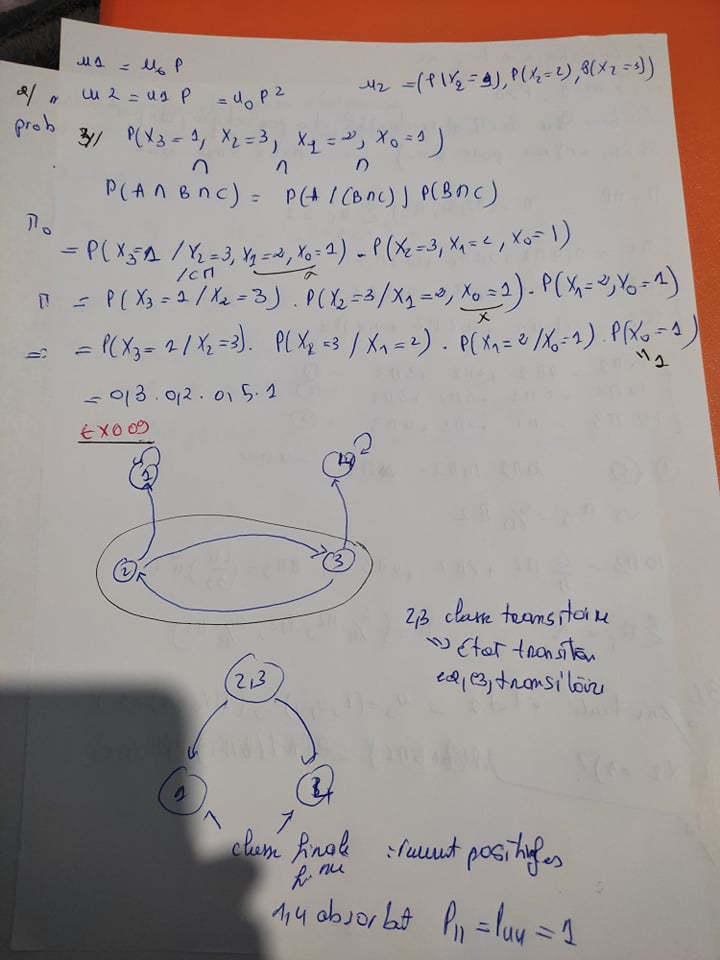 u1 = u0 P
2/ u2 = u1 P = u0 P² u2 = (P(X2=1), P(X2=2), P(X2=3))
prob 3// P(X3=1, X2=3, X1=2, X0=1)
∩ ∩ ∩
P(A ∩ B ∩ C) = P(A/(B∩C)) P(B∩C)
Π0
= P(X3=1 / X2=3, X1=2, X0=1) - P(X2=3, X1=2, X0=1)
/CΠ
Π = P(X3=1/X2=3). P(X2=3/X1=2, X0=1) - P(X1=2, X0=1)
X
= P(X3=1/X2=3). P(X2=3/X1=2). P(X1=2/X0=1). P(X0=1)
" 1
= 0,3.0,2.0,5.1
EXO 09
1 4
2 3
2,3 classe transitoire
Etat
transitoire
2,3
1 4
classe finale : positifs
1,4 absorbat P11 = P44 = 1